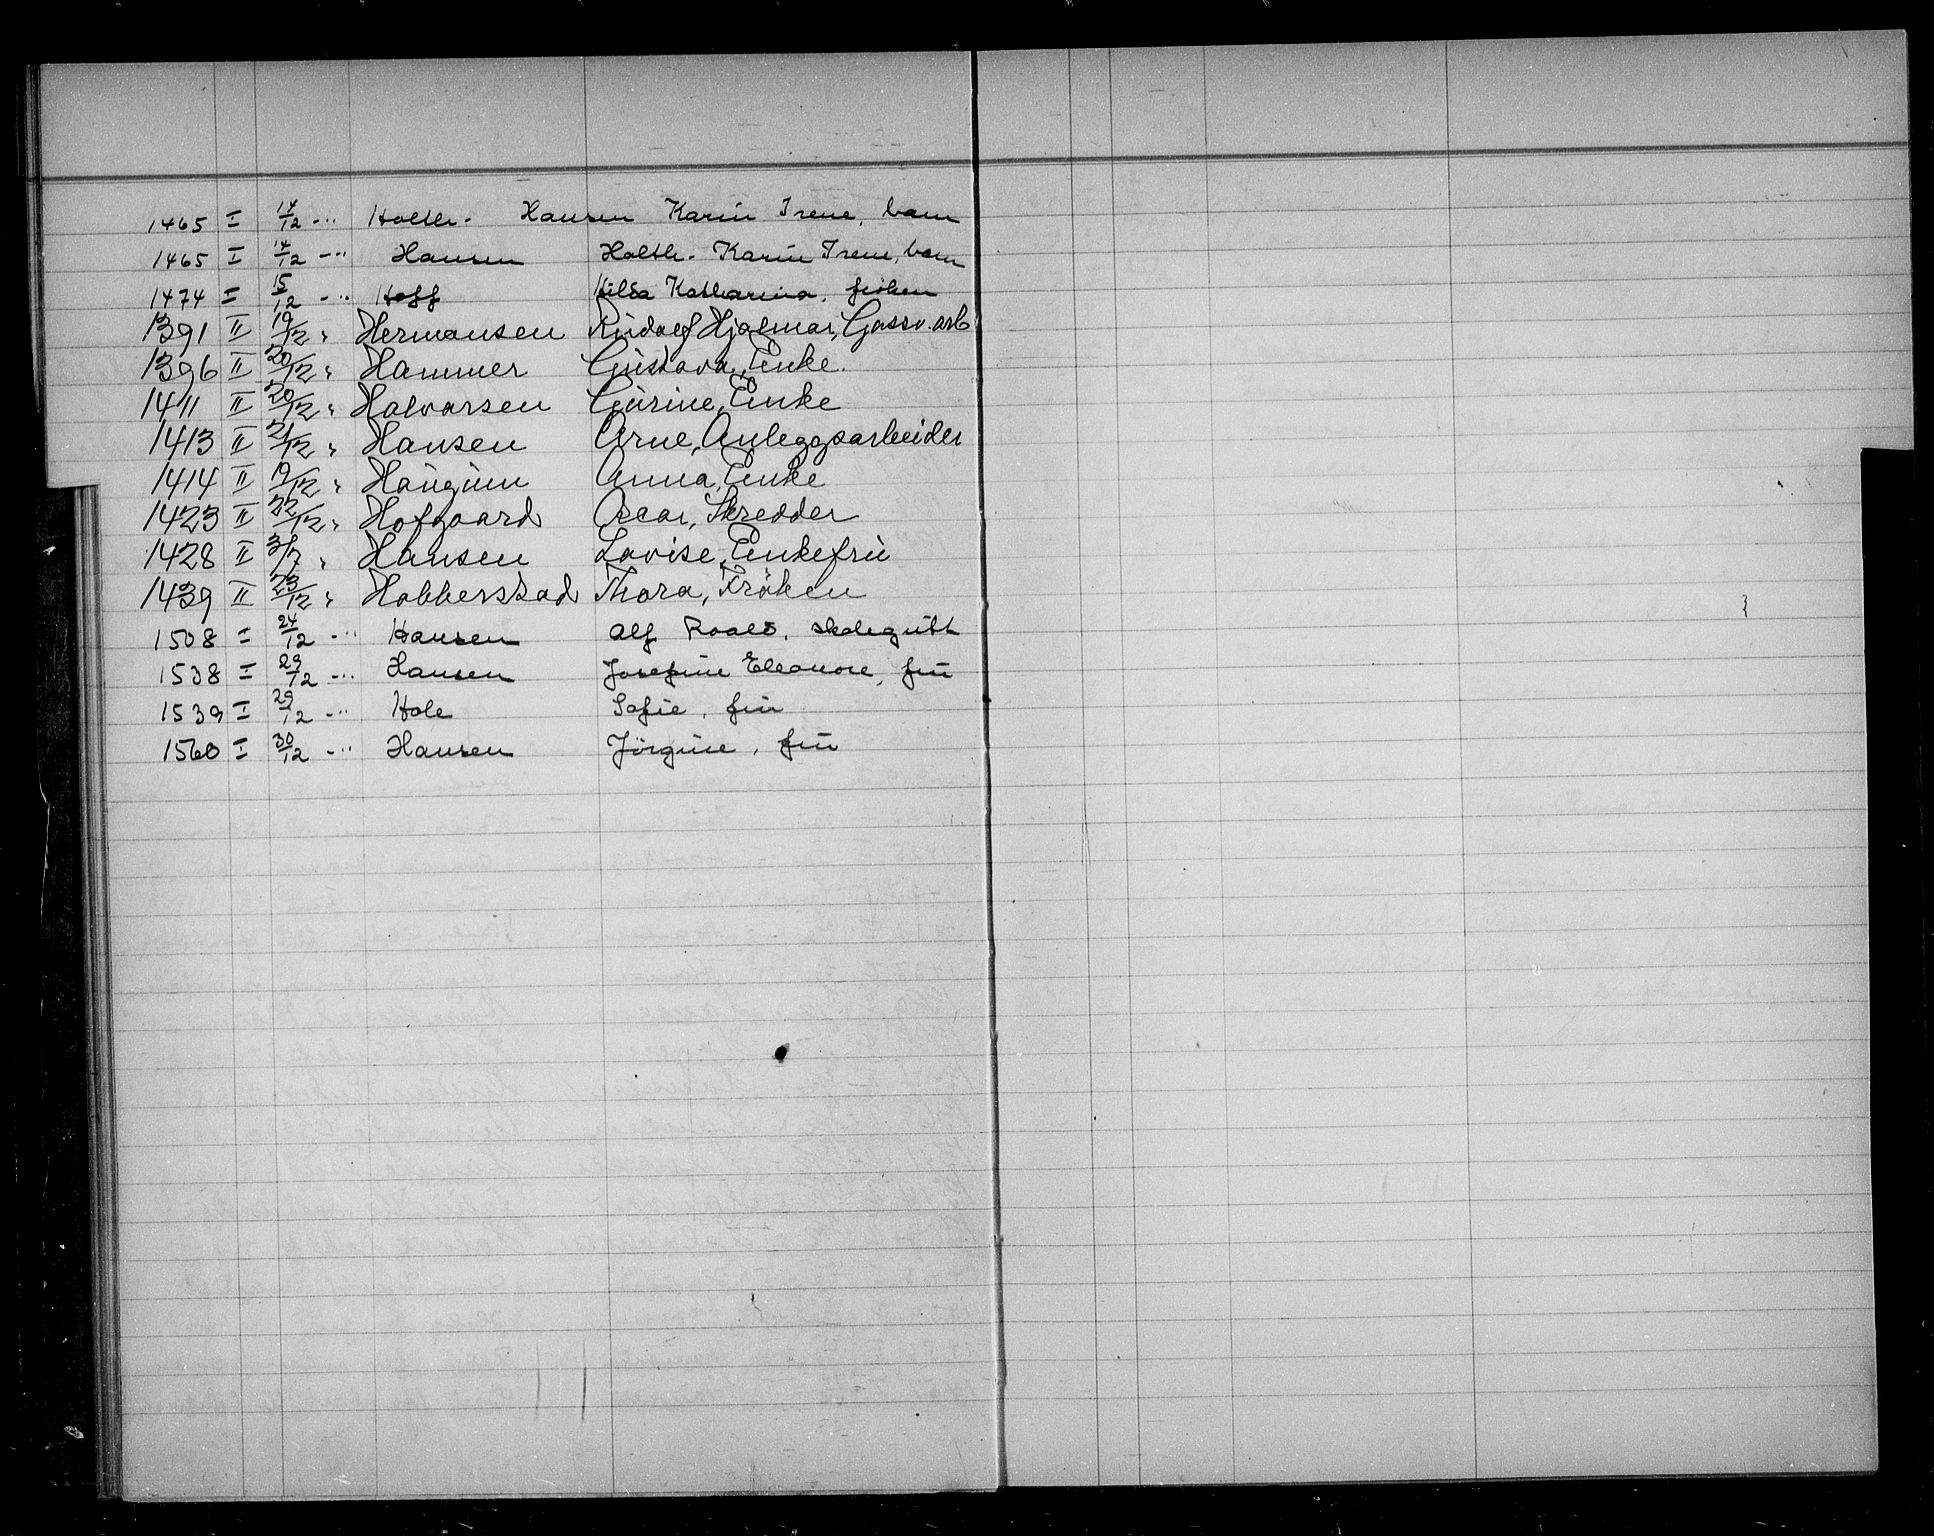 1465 I 14/12 -"- Holth- Hansen Karin Irene, barn
1465 I 14/12 -"- Hansen Holth- Karin Irene, barn
1474 I 15/12 -"- Hoff Hilda Katharina, frøken
1391 II 19/12 " Hermansen Rudolf Hjalmar, Gassv. arb
1396 II 20/12 " Hammer Gustava, Enke.
1411 II 20/12 " Halvorsen Gurine, Enke
1413 II 21/12 " Hansen Arne, Anleggsarbeider
1414 II 19/12 " Haugum Anna, Enke
1423 II 22/12 " Hofgaard Oscar, Skredder
1428 II 3/7 " Hansen Lovise, Enkefru
1439 II 23/12 " Hobberstad Thora, Frøken
1508 I 24/12 -"- Hansen Alf Roald, skolegutt
1538 I 29/12 -"- Hansen Josefine Eleonore, fru
1539 I 29/12 -"- Hole Sofie, fru
1560 I 30/12 -"- Hansen Jörgine, fru